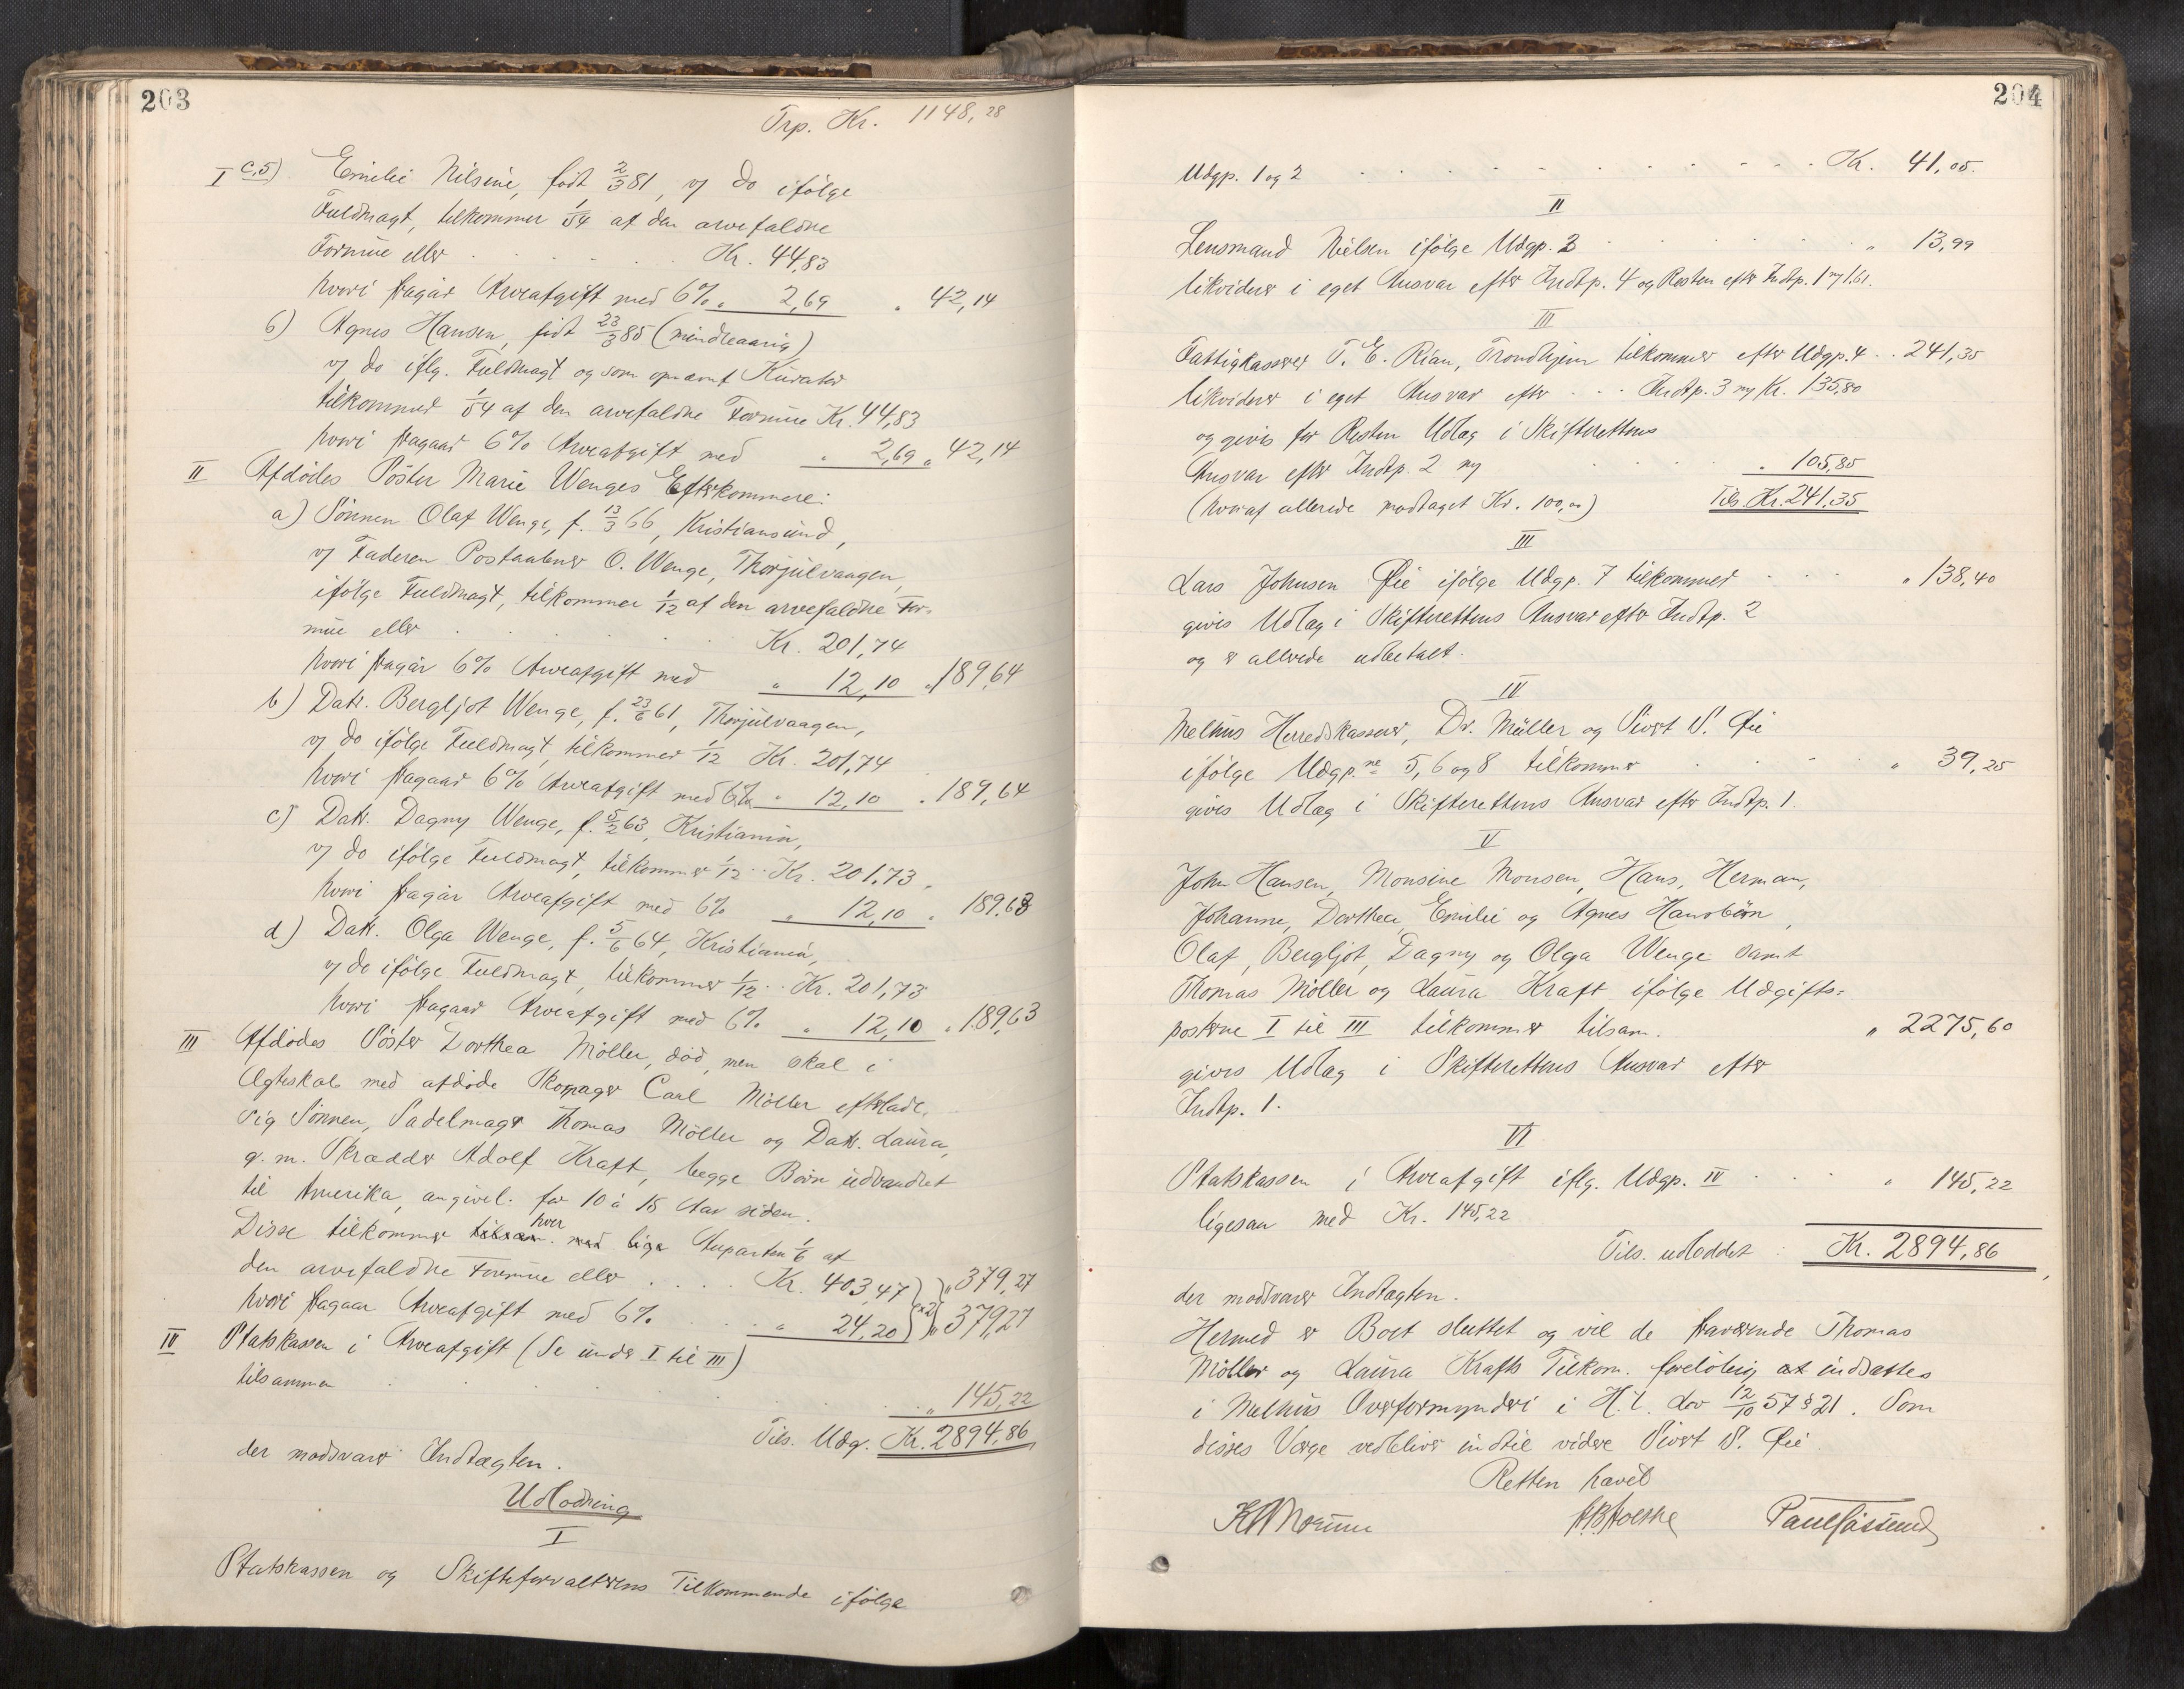 203
Trp. Kr. 1148,28
I c,5) Emilie Nilsine, født 2/3 81, v/ do ifølge
Fuldmagt, tilkommer 1/54 af den arvefaldne
Formue eller . . . . . . Kr. 44,83
hvori fragår Arveafgift med 6% „ 2,69 „ 42,14
6) Agnes Hansen, født 23/3 85 (mindreaarig)
v/ do iflg. Fuldmagt og som opnævnt Kurator
tilkommer 1/54 af den arvefaldne Formue Kr. 44,83
hvori fragaar 6% Arveafgift med „ 2,69 „ 42,14
II Afdødes Søster Marie Wenges Efterkommere:
a) Sønnen Olaf Wenge, f. 13/3 66, Kristiansund,
v/ Faderen Postaabner O. Wenge, Thorjulvaagen,
ifølge Fuldmagt, tilkommer 1/12 af den arvefaldne For-
mue eller . . . . . . Kr. 201,74
hvori fragår 6% Arveafgift med „ 12,10 „ 189,64
b) Datr. Bergljot Wenge, f. 23/6 61, Thorjulvaagen,
v/ do ifølge Fuldmagt, tilkommer 1/12 Kr. 201,74
hvori fragaar 6% Arveafgift med 6% „ 12,10 „ 189,64
c) Datr. Dagny Wenge, f. 5/2 63, Kristiania,
v/ do ifølge Fuldmagt, tilkommer 1/12 .. Kr. 201,73
hvori fragår Arveafgift med 6% „ 12,10 „ 189,63
d) Datr. Olga Wenge, f. 5/6 64, Kristiania,
v/ do ifølge Fuldmagt, tilkommer 1/12 .. Kr. 201,73
hvori fragaar Arveafgift med 6% „ 12,10 „ 189,63
III Afdødes Søster Dorthea Møller, død, men skal i
Ægteskab med afdøde Skomager Carl Møller efterladt
sig Sønnen, Sadelmager Thomas Møller og Datr. Laura,
g. m. Skrædder Adolf Kraft, begge Børn udvandret
til Amerika, angivel. for 10 à 15 Aar siden.
Disse tilkommer tilsam. hver med lige Anparter 1/6 af
den arvefaldne Formue eller . . . . Kr. 403,47 } „ 379,27
hvori fragaar Arveafgift med 6% . . . „ 24,20 } x2 { „ 379,27
IV Statskassen i Arveafgift (Se under I til III)
tilsammen . . . . . . „ 145,22
Tils. Udg. Kr. 2894,86
der modsvarer Indtægten.
Udlodning
I
Statskassen og Skifteforvalterens Tilkommende ifølge
204
Udgp. 1 og 2 . . . . . . . . . . Kr. 41,05.
II
Lensmand Nielsen ifølge Udgp. 3 . . . . . . „ 13,99
likvideres i eget Ansvar efter Indtp. 4 og Resten efter Indtp. 1 m/ 1.61.
III
Fattigkasserer T. E. Rian, Trondhjem tilkommer efter Udgp. 4 . . 241,35
likvideres i eget Ansvar efter . . . Indtp. 3 m/ Kr. 135,80
og givis for Resten Udlæg i Skifterettens
Ansvar efter Indtp. 2 m/ . . . . „ 105,85
(hvoraf allerede modtaget Kr. 100,00) Tils. Kr. 241,35
III
Lars Johnsen Øie ifølge Udgp. 7 tilkommer . . . „ 138,40
givis Udlæg i Skifterettens Ansvar efter Indtp. 2
og er allerede udbetalt.
IV
Melhus Herredskasserer, Dr. Müller og Sivert S. Øie
ifølge Udgp.ne 5, 6 og 8 tilkommer . . . . „ 39,25
givis Udlæg i Skifterettens Ansvar efter Indtp. 1.
V
John Hansen, Monsine Monsen, Hans, Herman,
Johanne, Dorthea, Emilie og Agnes Hansbørn,
Olaf, Bergljot, Dagny og Olga Wenge samt
Thomas Møller og Laura Kraft ifølge Udgifts-
posterne I til III tilkommer tilsam. „ 2275,60
givis Udlæg i Skifterettens Ansvar efter
Indtp. 1.
VI
Statskassen i Arveafgift iflg. Udgp. IV . . . „ 145,22
ligesaa med Kr. 145,22
Tils. udloddet : Kr. 2894,86
der modsvarer Indtægten.
Hermed er Boet sluttet og vil de fraværende Thomas
Møller og Laura Krafts Tilkom. foreløbig at indsættes
i Melhus Overformynderi i H. t. Lov 12/10 57 § 21. Som
disses Værge vedbliver indtil videre Sivert S. Øie
Retten hævet